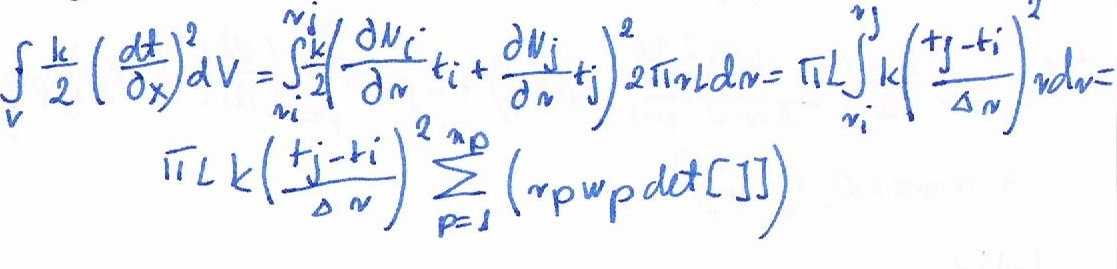 ∫_V k/2 (dt/∂x)² dV = ∫_{ri}^{rj} k/2 (∂Ni/∂r ti + ∂Nj/∂r tj)² 2πrLdr = πL ∫_{ri}^{rj} k ((tj-ti)/Δr)² rdr =
πLk ((tj-ti)/Δr)² ∑_{p=1}^{np} (rp wp det[J])